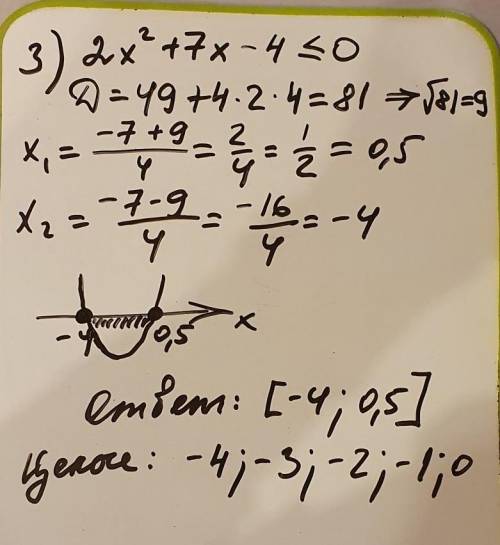 3) 2x² + 7x - 4 ≤ 0
Д = 49 + 4 · 2 · 4 = 81 ⇒ √81 = 9
x₁ = (-7 + 9)/4 = 2/4 = 1/2 = 0,5
x₂ = (-7 - 9)/4 = -16/4 = -4
-4 0,5 x
Ответ: [-4; 0,5]
Целое: -4; -3; -2; -1; 0